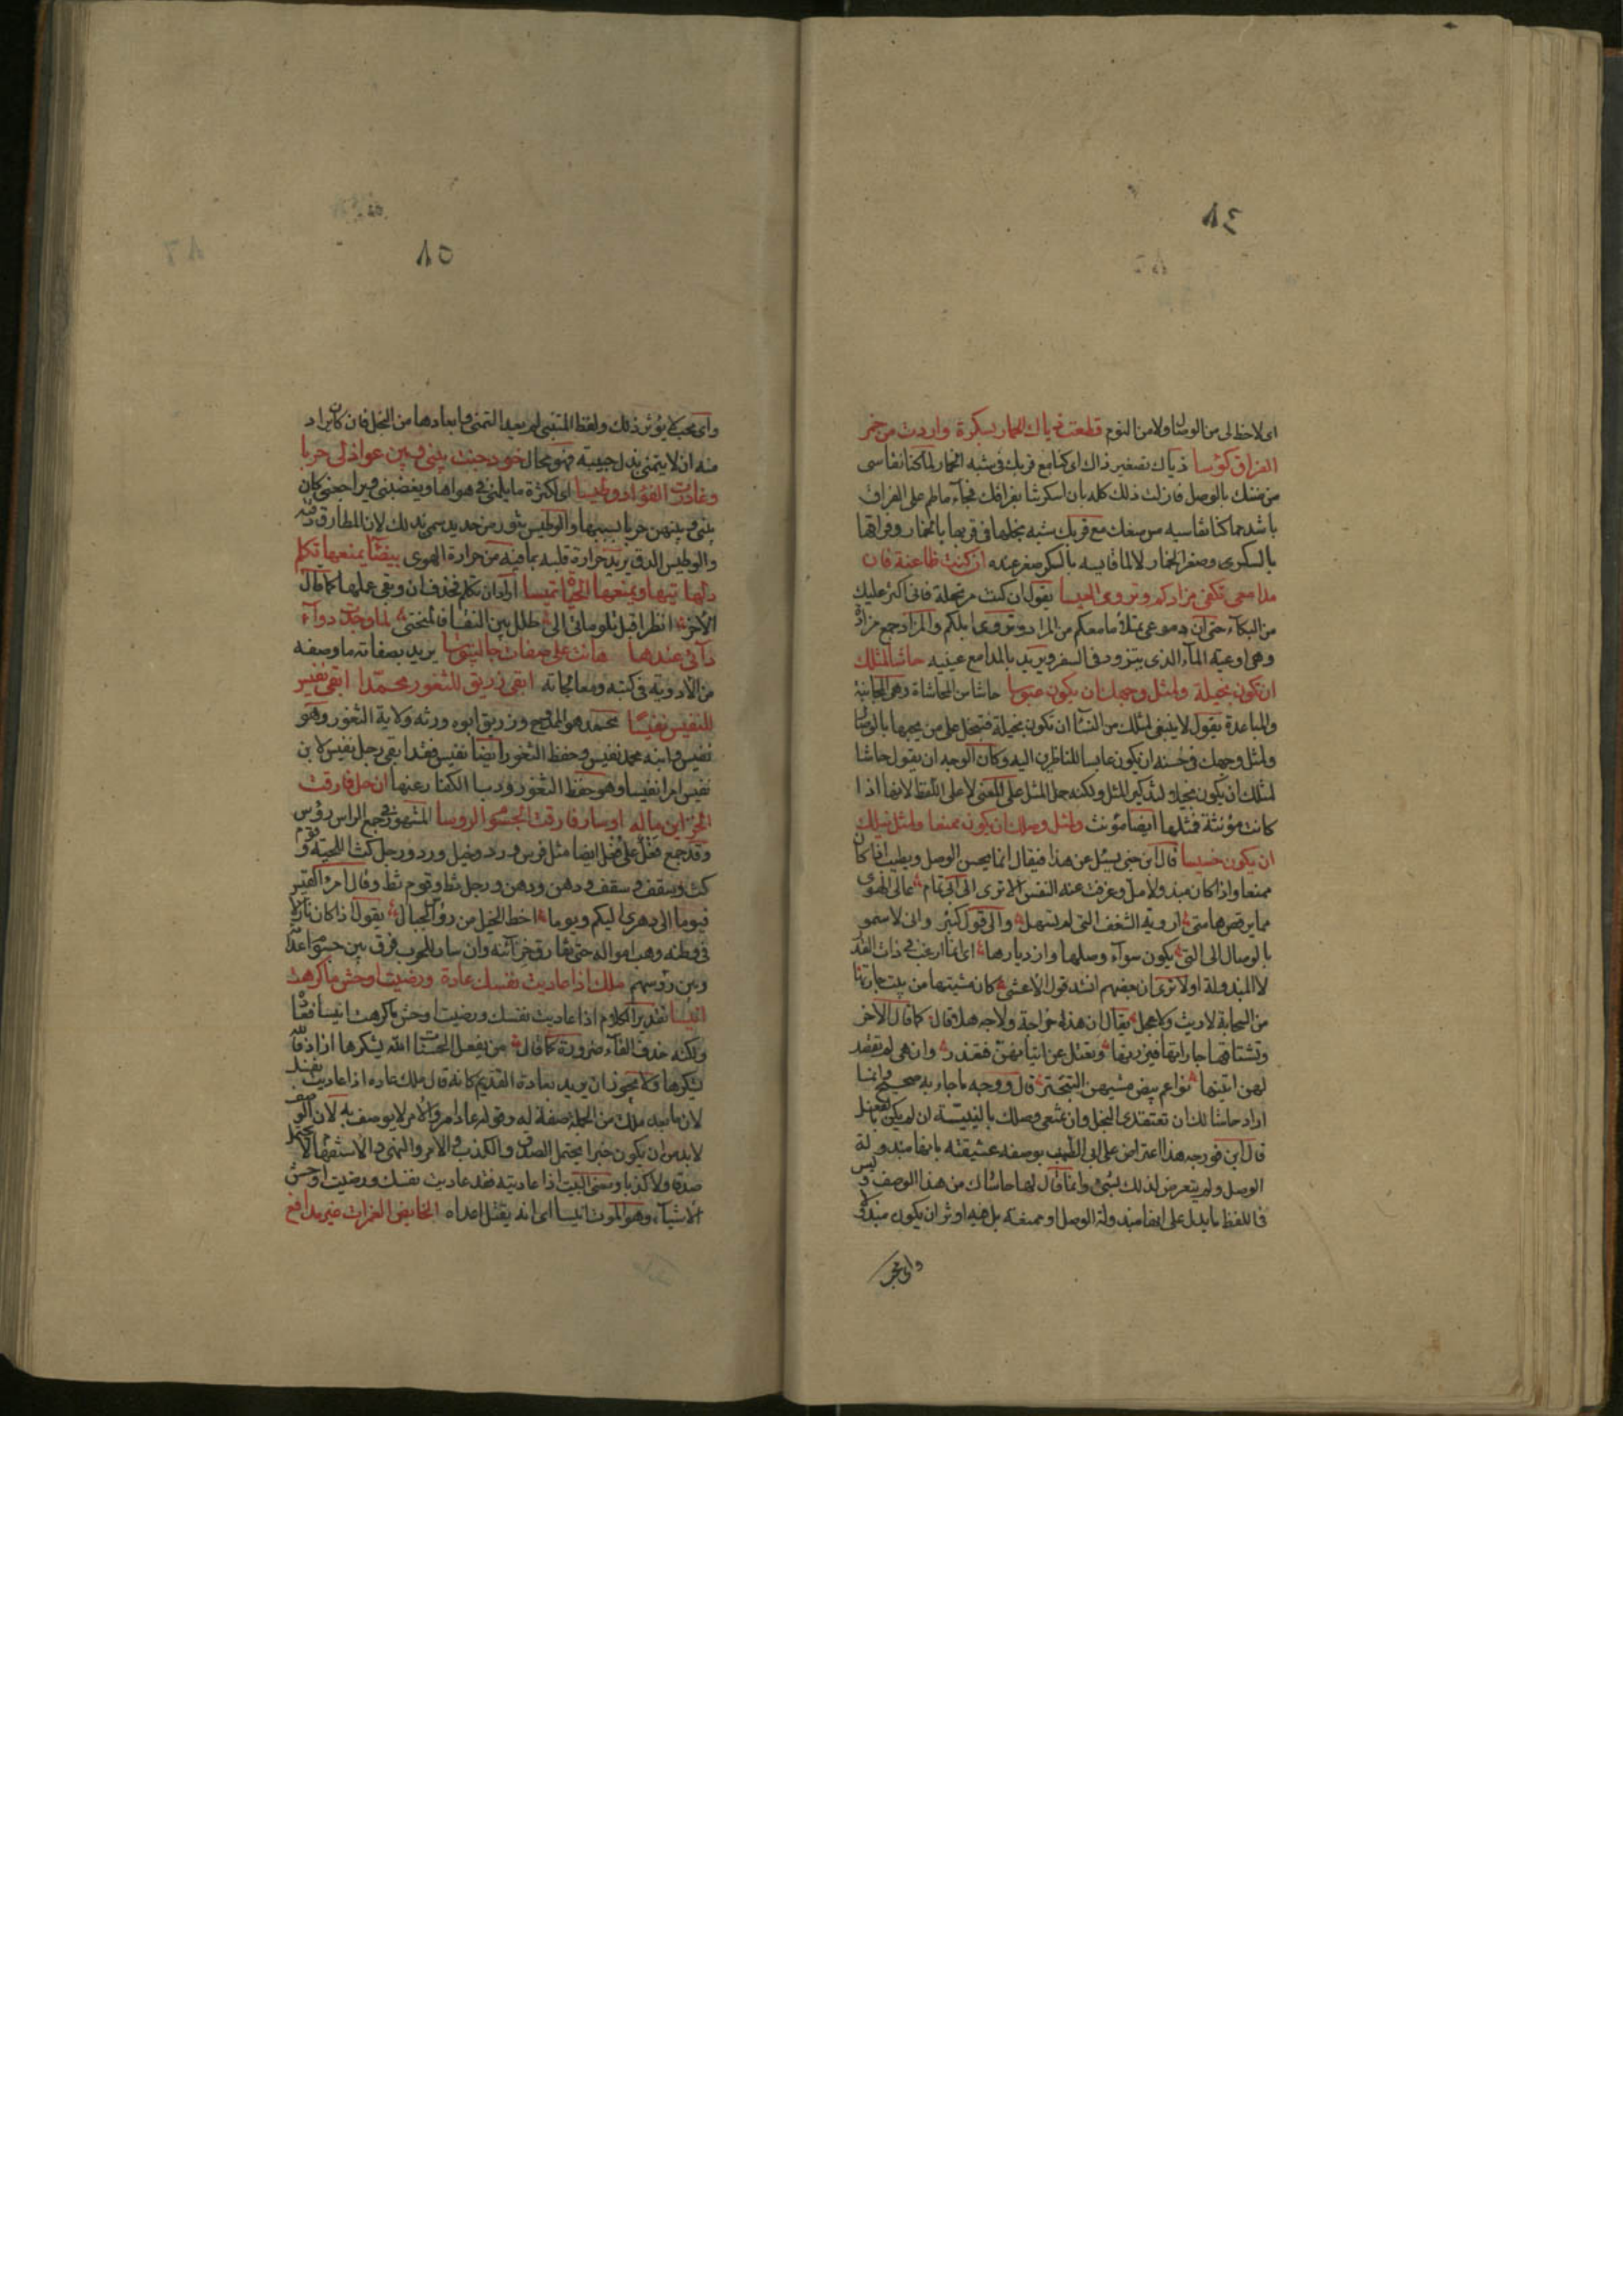 ٨٤
اى لاحظ لى من الوصال ولا من النوم قطعت ذياك الخمار بسكرة وادرت من خمر
الفراق كؤسا ذياك تصغير ذاك اى كنا مع قربك فى شبه الخمار لما كنا نقاسى
من ضنك بالوصل فازلت ذلك كله بان اسكرتنا بفراقك فجآء ما طم على الفراق
باشد مما كنا نقاسيه من منعك مع قربك شبه بخلها فى قربها بالخمار وفراقها
بالسكرى وصغر الخمار لا لما قايسه بالسكر صغر عنده ان كنت ظاعنة فان
مدامعى تكفى مزادكم وتروى العيسا يقول ان كنت مرتحلة فانى اكثر عليك
من البكآء حتى ان دموعى تملأ ما معكم من المزاد وتروى ابلكم والمزاد جمع مزادة
وهى اوعية المآء الذى يتزود فى السفر ويريد بالمدامع عينيه حاشا لمثلك
ان تكون بخيلة ولمثل وجهك ان يكون عبوسا حاشا من المحاشاة وهى المجانبة
والمباعدة يقول لا ينبغى لمثلك من النسآ ان تكون بخيلة فتبخل على من يحبها بالوصال
ولمثل وجهك فى حسنه ان يكون عابسا للناظرين اليه وكان الوجه ان يقول حاشا
لمثلك ان يكون بخيلا لتذكير المثل ولكنه حمل المثل على المعنى لا على اللفظ لانها اذا
كانت مؤنثة فمثلها ايضا مؤنث ولمثل وصلك ان يكون ممنعا ولمثل نيلك
ان يكون خسيسا قال ابن جنى يسئل عن هذا فيقال انما يحسن الوصل ويطيب اذا كان
ممنعا واذا كان مبذولا مل وعزفت عنه النفس الا ترى الى ابى تمام عالى الهوى
مما يرقص هامتى اروية الشعف التى لم تسهل والى قول كثير وانى لاسمو
بالوصال الى التى يكون سوآء وصلها وازديارها اى انما ارغب فى ذات القدر
لا المبذولة اولا ترى ان بعضهم انشد قول الاعشى كان مشيتها من بيت جارتها
مر السحابة لا ريث ولا عجل فقال ان هذه خراجة ولاجة هلا قال كما قال الاخر
وتشتاقها جاراتها فيزرنها وتعتل عن اتيانهن فتعذر وان هى لم تقصد
لهن اتينها نواعم بيض مشيهن التبختر قال ووجه ما جاء به صحيح وانما
اراد حاشا لك ان تعتقدى البخل وان تمنعى وصلك بالنية ان لم يكن بالفعل
قال ابن فورجه هذا اعتراض على ابى الطيب بوصفه عشيقته بانها مبذولة
الوصل ولم يتعرض لذلك بشىء وانما قال لها حاشاك من هذا الوصف وليس
فى اللفظ ما يدل على انها مبذولة الوصل او ممنعته بل فيه اوثر ان يكون مبذولا
واى محب
٨٥
واى محب لا يؤثر ذلك ولفظ المتنبى لم يفد التمنى وابعادها من البخل فان كان يراد
منه ان لا يتمنى بذل حبيبه فهو محال خود جنت بينى وبين عواذلى حربا
وغادرت الفؤاد وطيسا اى لكثرة ما يلمننى فى هواها ويغضبننى ويراجعننى كان
بينى وبينهن حربا بسببها والوطيس تنور من حديد سمى بذلك لان المطارق دقته
والوطيس الدق يريد حرارة قلبه بما فيه من حرارة الهوى بيضآ يمنعها تكلم
دلها تيها ويمنعها الحيآء تميسا اراد ان تتكلم فحذف ان وبقى عملها كما قال
الآخر انظرا قبل تلومانى الى طلل بين النقا فالمنحنى لما وجدت دوآء
دآئى عندها هانت على صفات جالينوسا يريد بصفاته ما وصفه
من الادوية فى كتبه ومعالجاته ابقى زريق للثغور محمدا ابقى نفيس
للنفيس نفيسا محمد هو الممدوح وزريق ابوه ورثه ولاية الثغور وهو
نفيس وابنه محمد نفيس وحفظ الثغور ايضا نفيس فقد ابقى رجل نفيس لابن
نفيس امرا نفيسا وهو حفظ الثغور وذب الكفار عنها ان حل فارقت
الخزآئن ماله او سار فارقت الجسوم الروسا المشهور فى جمع الراس رؤس
وقد جمع فعل على فعل ايضا مثل فرس ورد وخيل ورد ورجل كث اللحية وقوم
كث وسقف وسقف ودهن ودهن ورجل ثط وقوم ثط وقال امرؤ القيس
فيوما الى دهرى اليكم ويوما احط الخيل من رؤس الجبال يقول اذا كان نازلا
فى وطنه وهب امواله حتى تفارق خزآئنه وان سار للحرب فرق بين جسوم اعدآئه
وبين رؤسهم ملك اذا عاديت نفسك عاده ورضيت اوحش ما كرهت
انيسا تقدير الكلام اذا عاديت نفسك ورضيت اوحش ما كرهت انيسا فعاده
ولكنه حذف الفآء ضرورة كما قال من يفعل الحسنات الله يشكرها اراد فالله
يشكرها ولا يجوز ان يريد بعاده التقديم كانه قال ملك عاده اذا عاديت نفسك
لان ما بعد ملك من الجملة صفة له وقوله عاد امر والامر لا يوصف به لان الوصف
لا بد من ان يكون خبرا يحتمل الصدق والكذب والامر والنهى والاستفهام لا يحتمل
صدقا ولا كذبا ومعنى البيت اذا عاديته فقد عاديت نفسك ورضيت اوحش
الاشيآء وهو الموت انيسا اى انه يقتل اعداه الخايض الغمرات غير مدافع